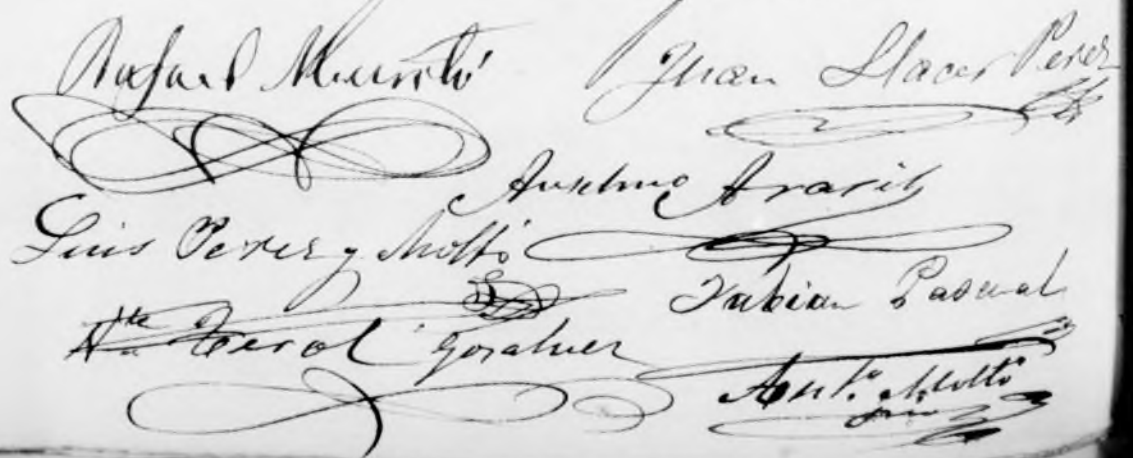 Rafael
Juan Llacer Perez
Anselmo Aracil
Luis Perez y Moltó
Fabian Pascual
Terol Gosalvez
Ant.º Moltó